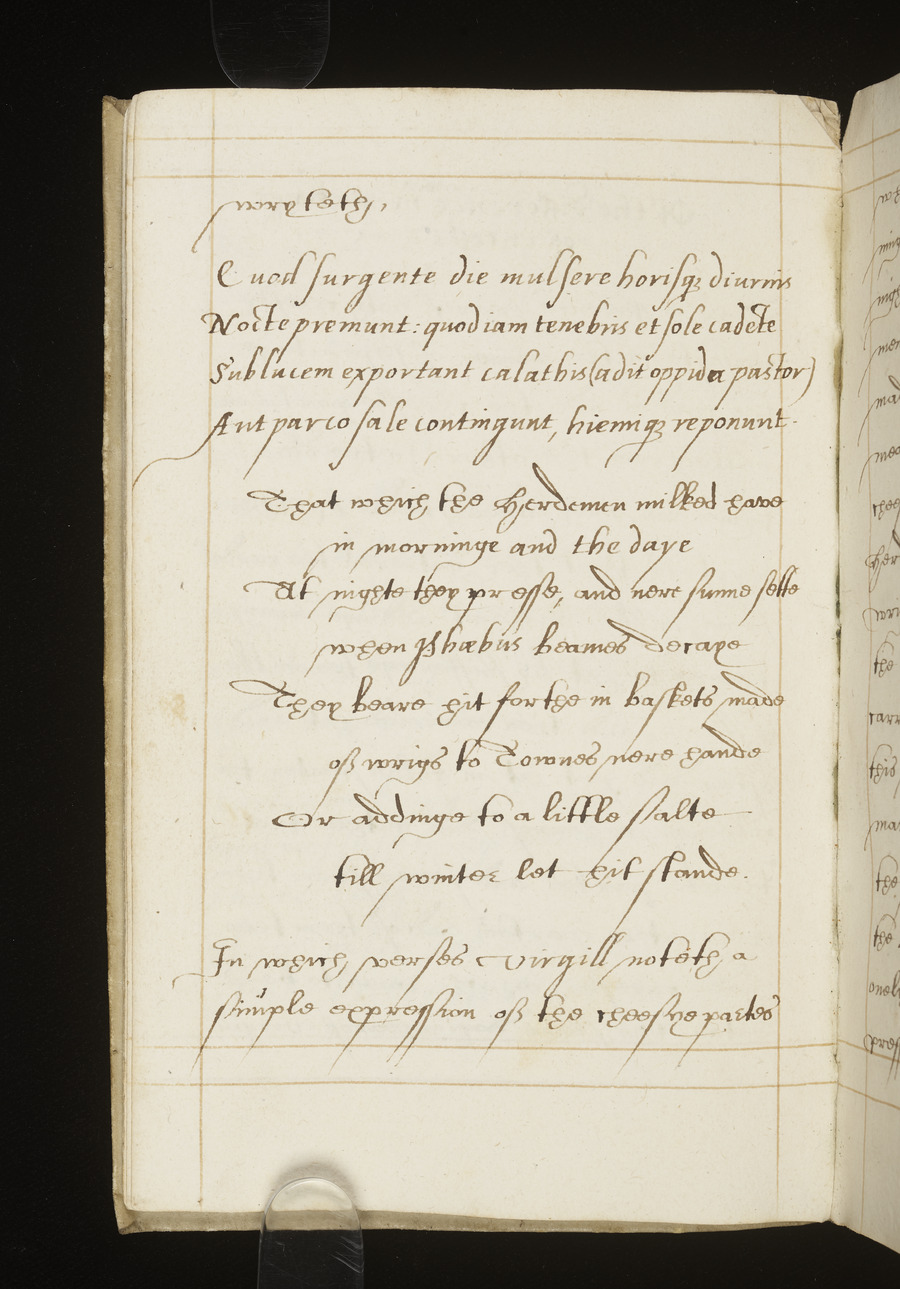 wryteth,
Quod surgente die mulsere horisq; diurnis
Nocte premunt: quod iam tenebris et sole cadēte
Sub lucem exportant calathis (adit oppida pastor)
Aut parco sale contingunt, hiemiq; reponunt.
That which the Herdemen milked have
in morninge and the daye
At nighte they presse, and nere sunne sette
when Phæbus beames decaye
They beare hit forthe in baskets made
off wrigs to Townes nere hande
Or addinge to a little salte
till winter let hit stande.
In which verses Virgill noteth a
simple expression off the cheesye partes